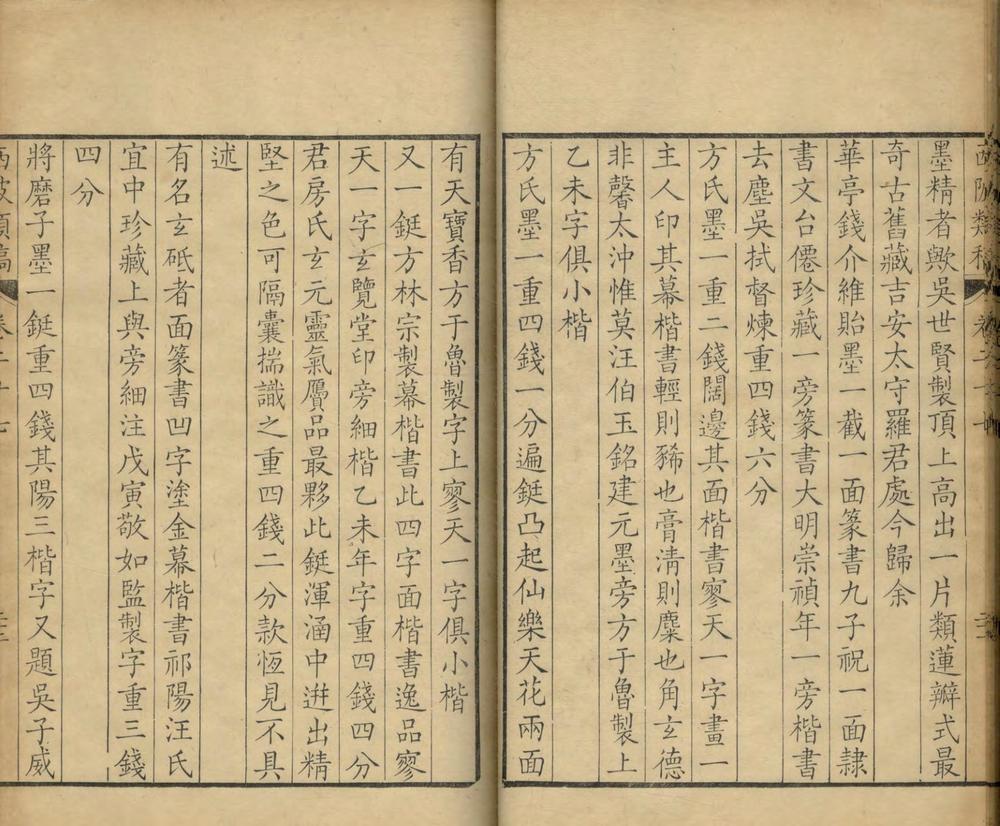 墨精者歟吳世賢製頂上高出一片類蓮瓣式最
奇古舊藏吉安太守羅君處今歸余
華亭錢介維貽墨一截一面篆書九子祝一面隸
書文台僊珍藏一旁篆書大明崇禎年一旁楷書
去塵吳拭督煉重四錢六分
方氏墨一重二錢闊邊其面楷書寥天一字畫一
主人印其幕楷書輕則豨也膏淸則麋也角玄德
非馨太沖惟莫汪伯玉銘建元墨旁方于魯製上
乙未字俱小楷
方氏墨一重四錢一分遍鋌凸起仙樂天花兩面
有天寶香方于魯製字上寥天一字俱小楷
又一鋌方林宗製幕楷書此四字面楷書逸品寥
天一字玄覽堂印旁細楷乙未年字重四錢四分
君房氏玄元靈氣贗品最夥此鋌渾涵中逬出精
堅之色可隔囊揣識之重四錢二分款恆見不具
述
有名玄砥者面篆書凹字塗金幕楷書祁陽汪氏
宜中珍藏上與旁細注戊寅敬如監製字重三錢
四分
將磨子墨一鋌重四錢其陽三楷字又題吳子威